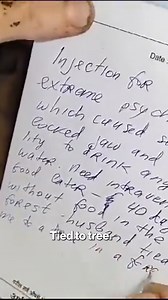 Date
Injection for
extreme psych
which caused s
locked jaw and
lity to drink any
water. Need intraven
food eater 40 kg
without food in the
forest. husband tied
to a
Tied to tree
in a